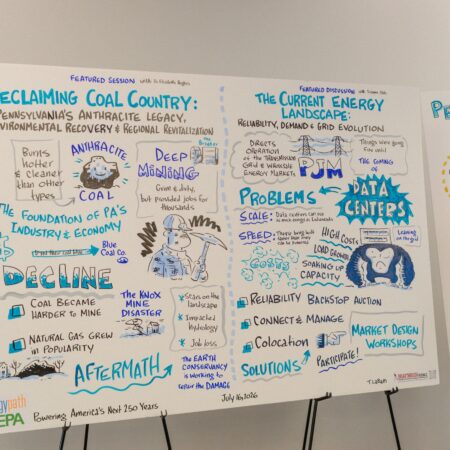 FEATURED SESSION
RECLAIMING COAL COUNTRY:
PENNSYLVANIA'S ANTHRACITE LEGACY,
ENVIRONMENTAL RECOVERY & REGIONAL REVITALIZATION
BURNS
HOTTER
& CLEANER
THAN OTHER
TYPES
ANTHRACITE
COAL
DEEP
MINING
The Breaker
Grim & dirty,
but provided jobs for
thousands
THE FOUNDATION OF PA'S
INDUSTRY & ECONOMY
Blue
Coal Co.
DECLINE
COAL BECAME
HARDER TO MINE
NATURAL GAS GREW
IN POPULARITY
THE KNOX
MINE
DISASTER
Scars on the
landscape
Impacted
hydrology
Job loss
AFTERMATH
THE EARTH
CONSERVANCY
IS WORKING TO
REPAIR THE DAMAGE
EPA
Powering America's Next 250 Years
July 16, 2026
FEATURED DISCUSSION
THE CURRENT ENERGY
LANDSCAPE:
RELIABILITY, DEMAND & GRID EVOLUTION
DIRECTS
OPERATION
OF THE TRANSMISSION
GRID & WHOLESALE
ENERGY MARKETS
PJM
Things were going
fine until
THE COMING OF
DATA
CENTERS
PROBLEMS
SCALE:
SPEED:
HIGH COSTS
LOAD GROWTH
SOAKING UP
CAPACITY
RELIABILITY BACKSTOP AUCTION
CONNECT & MANAGE
COLOCATION
SOLUTIONS
PARTICIPATE!
MARKET DESIGN
WORKSHOPS